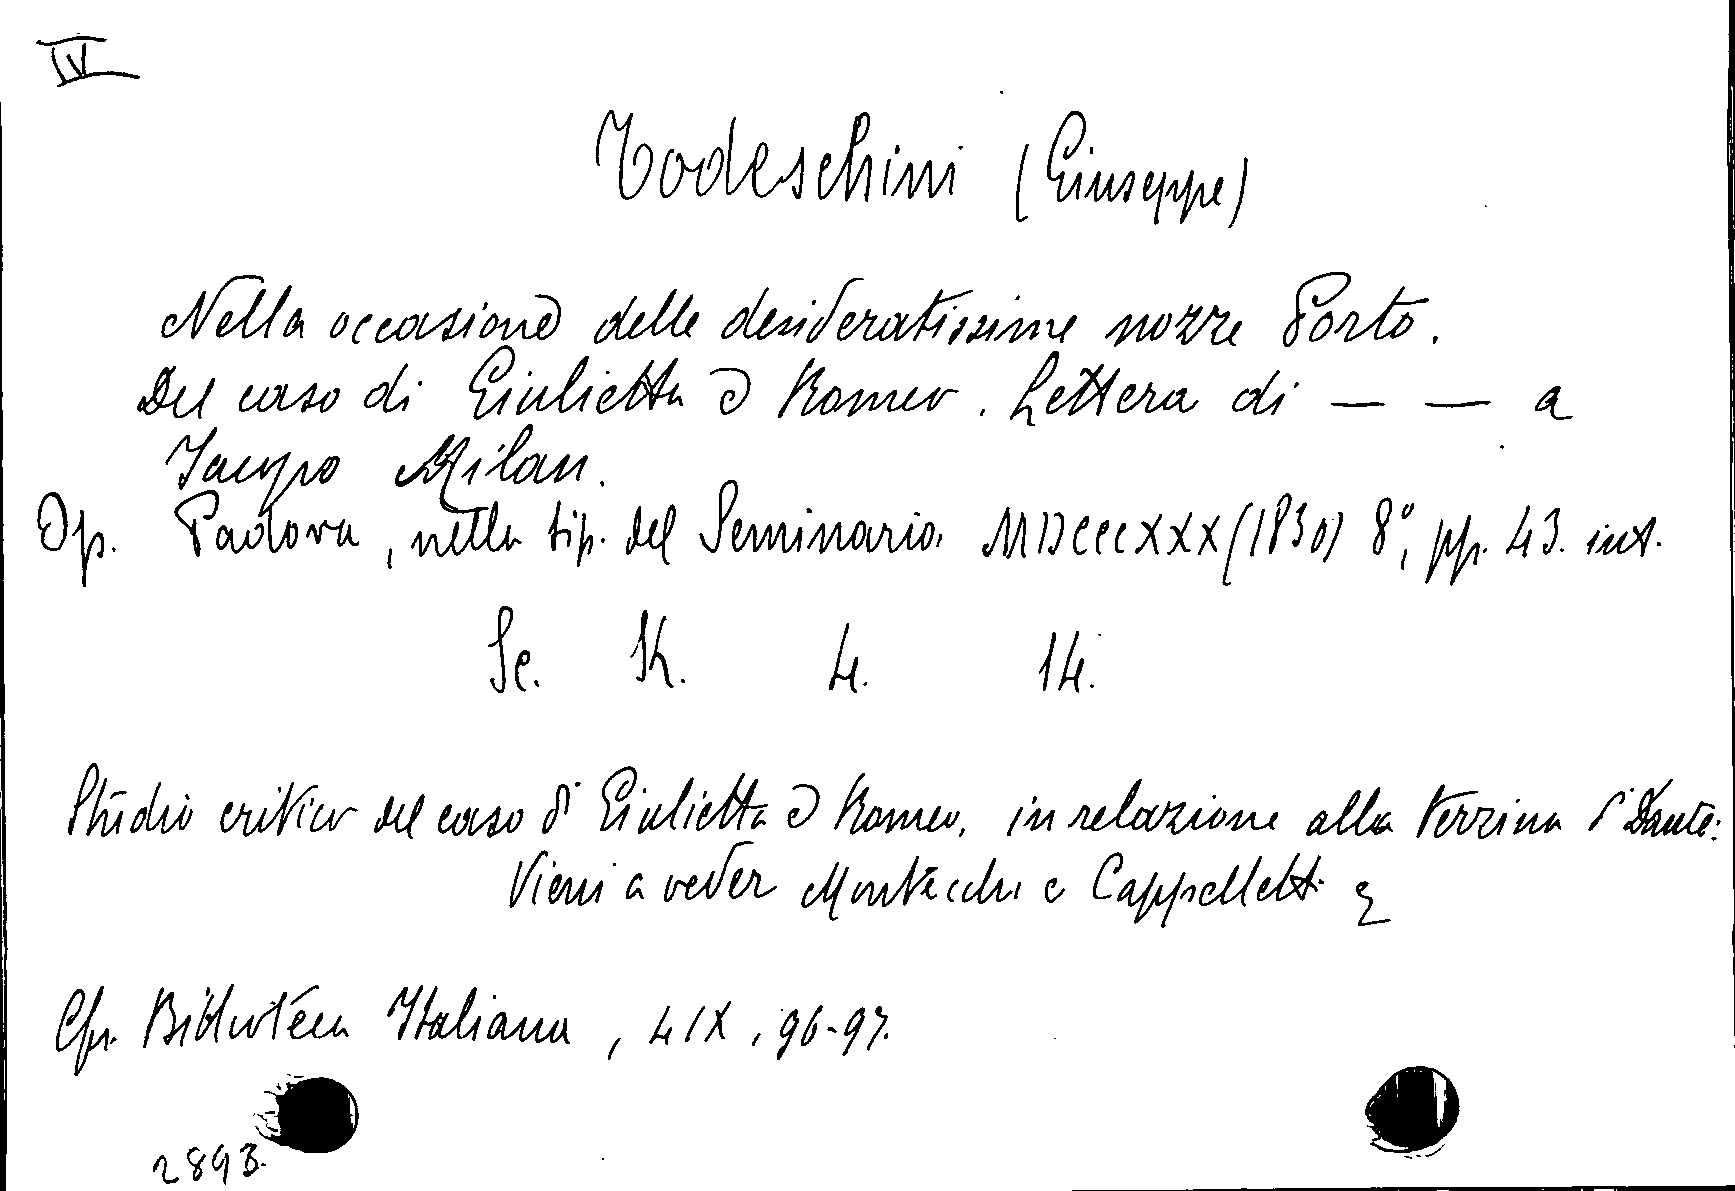 IV
Todeschini (Giuseppe)
Nella occasione delle desideratissime nozze Porto.
Del caso di Giulietta e Romeo. Lettera di — — a
Jacopo Milan.
Op. Padova, nella tip. del Seminario. MDCCCXXX (1830) 8°, pp. 43. int.
Sc. K. 4. 14.
Studio critico del caso di Giulietta e Romeo, in relazione alla terzina di Dante:
Vieni a veder Montecchi e Cappelletti
Cfr. Biblioteca Italiana, LIX, 96-97.
2893.